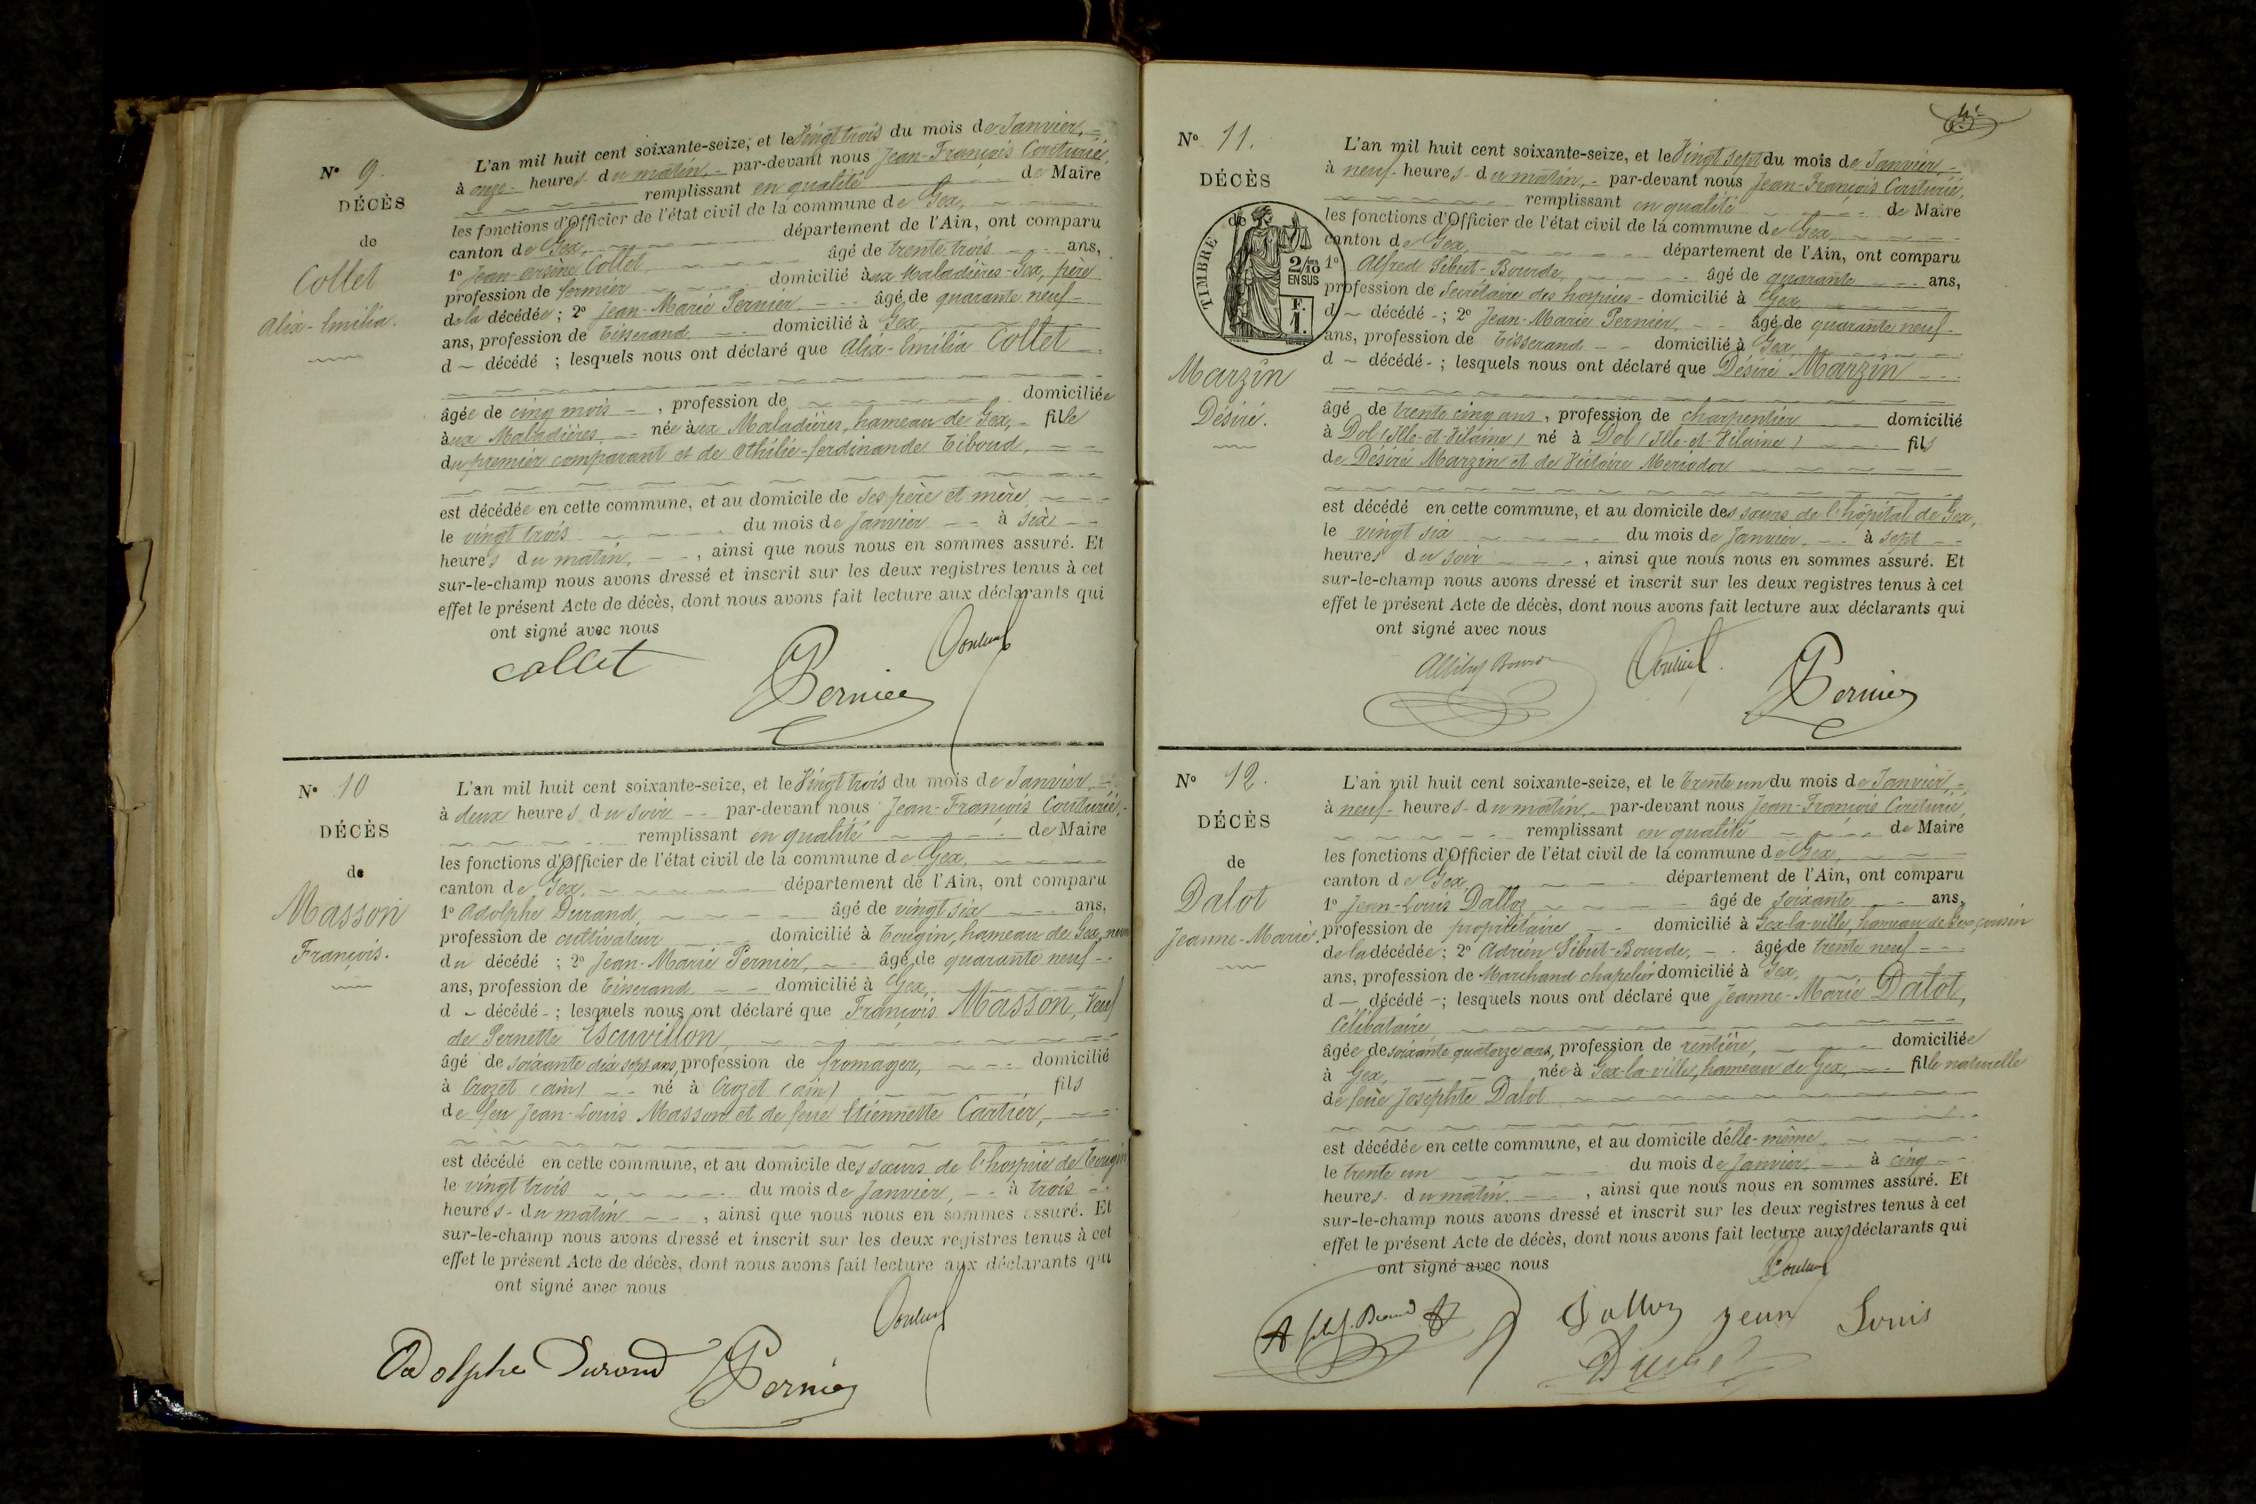 N° 9.
DÉCÈS
de
Collet
Alix-Emilia.
L'an mil huit cent soixante-seize, et le Vingt trois du mois de Janvier,
à onze heures du matin, par-devant nous Jean-François Couturié,
remplissant en qualité de Maire
les fonctions d'Officier de l'état civil de la commune de Gex,
canton de Gex, département de l'Ain, ont comparu
1° Jean-Arsène Collet âgé de trente trois ans,
profession de fermier domicilié aux Maladières-Gex, père
de la décédée ; 2° Jean-Marie Pernier âgé de quarante neuf
ans, profession de Tisserand domicilié à Gex,
d décédé ; lesquels nous ont déclaré que Alix-Emilia Collet
âgée de cinq mois, profession de domiciliée
aux Maladières, née aux Maladières, hameau de Gex, fille
du premier comparant et de Othélie-ferdinande Tiboud,
est décédée en cette commune, et au domicile de ses père et mère
le vingt trois du mois de Janvier à six
heures du matin, ainsi que nous nous en sommes assuré. Et
sur-le-champ nous avons dressé et inscrit sur les deux registres tenus à cet
effet le présent Acte de décès, dont nous avons fait lecture aux déclarants qui
ont signé avec nous
Collet Pernier
N° 10
DÉCÈS
de
Masson
François.
L'an mil huit cent soixante-seize, et le Vingt trois du mois de Janvier,
à deux heures du soir par-devant nous Jean-François Couturié,
remplissant en qualité de Maire
les fonctions d'Officier de l'état civil de la commune de Gex,
canton de Gex, département de l'Ain, ont comparu
1° Adolphe Durand, âgé de vingt six ans,
profession de cultivateur domicilié à Tougin, hameau de Gex, neveu
du décédé ; 2° Jean-Marie Pernier, âgé de quarante neuf
ans, profession de Tisserand domicilié à Gex,
d décédé ; lesquels nous ont déclaré que François Masson, Veuf
de Pernette
âgé de soixante dix sept ans, profession de fromager, domicilié
à Crozet (ain) né à Crozet (ain) fils
de feu Jean-Louis Masson et de feue Etiennette Cartier,
est décédé en cette commune, et au domicile des sœurs de l'hospice de Tougin
le vingt trois du mois de Janvier, à trois
heures du matin, ainsi que nous nous en sommes assuré. Et
sur-le-champ nous avons dressé et inscrit sur les deux registres tenus à cet
effet le présent Acte de décès, dont nous avons fait lecture aux déclarants qui
ont signé avec nous
Adolphe Durand Pernier
4e
N° 11.
DÉCÈS
de
TIMBRE
2/10
EN SUS
F.
1.
Marzin
Désiré.
L'an mil huit cent soixante-seize, et le Vingt sept du mois de Janvier,
à neuf heures du matin, par-devant nous Jean-François Couturié,
remplissant en qualité de Maire
les fonctions d'Officier de l'état civil de la commune de Gex
canton de Gex département de l'Ain, ont comparu
1° Alfred Sibut-Bourde, âgé de quarante ans,
profession de Secrétaire des hospices domicilié à Gex
d décédé ; 2° Jean-Marie Pernier âgé de quarante neuf
ans, profession de Tisserand domicilié à Gex,
d décédé ; lesquels nous ont déclaré que Désiré Marzin
âgé de trente cinq ans, profession de charpentier domicilié
à Dol (Ille-et-Vilaine) né à Dol (Ille-et-Vilaine) fils
de Désiré Marzin et de Victoire
est décédé en cette commune, et au domicile des sœurs de l'hôpital de Gex,
le vingt six du mois de Janvier, à sept
heures du soir, ainsi que nous nous en sommes assuré. Et
sur-le-champ nous avons dressé et inscrit sur les deux registres tenus à cet
effet le présent Acte de décès, dont nous avons fait lecture aux déclarants qui
ont signé avec nous
Pernier
N° 12.
DÉCÈS
de
Dalot
Jeanne-Marie.
L'an mil huit cent soixante-seize, et le trente un du mois de Janvier,
à neuf heures du matin, par-devant nous Jean-François Couturié,
remplissant en qualité de Maire
les fonctions d'Officier de l'état civil de la commune de Gex,
canton de Gex, département de l'Ain, ont comparu
1° Jean-Louis Dalloz âgé de soixante ans,
profession de propriétaire domicilié à Gex-la-ville, hameau de Gex, cousin
de la décédée ; 2° Adrien Sibut-Bourde, âgé de trente neuf
ans, profession de Marchand chapelier domicilié à Gex,
d décédé ; lesquels nous ont déclaré que Jeanne-Marie Dalot,
Célibataire
âgée de soixante quatorze ans, profession de rentière, domiciliée
à Gex, née à Gex-la-ville, hameau de Gex, fille naturelle
de feue Josephte Dalot
est décédée en cette commune, et au domicile d'elle-même,
le trente un du mois de Janvier, à cinq
heures du matin, ainsi que nous nous en sommes assuré. Et
sur-le-champ nous avons dressé et inscrit sur les deux registres tenus à cet
effet le présent Acte de décès, dont nous avons fait lecture aux déclarants qui
ont signé avec nous
Dalloz jean Louis